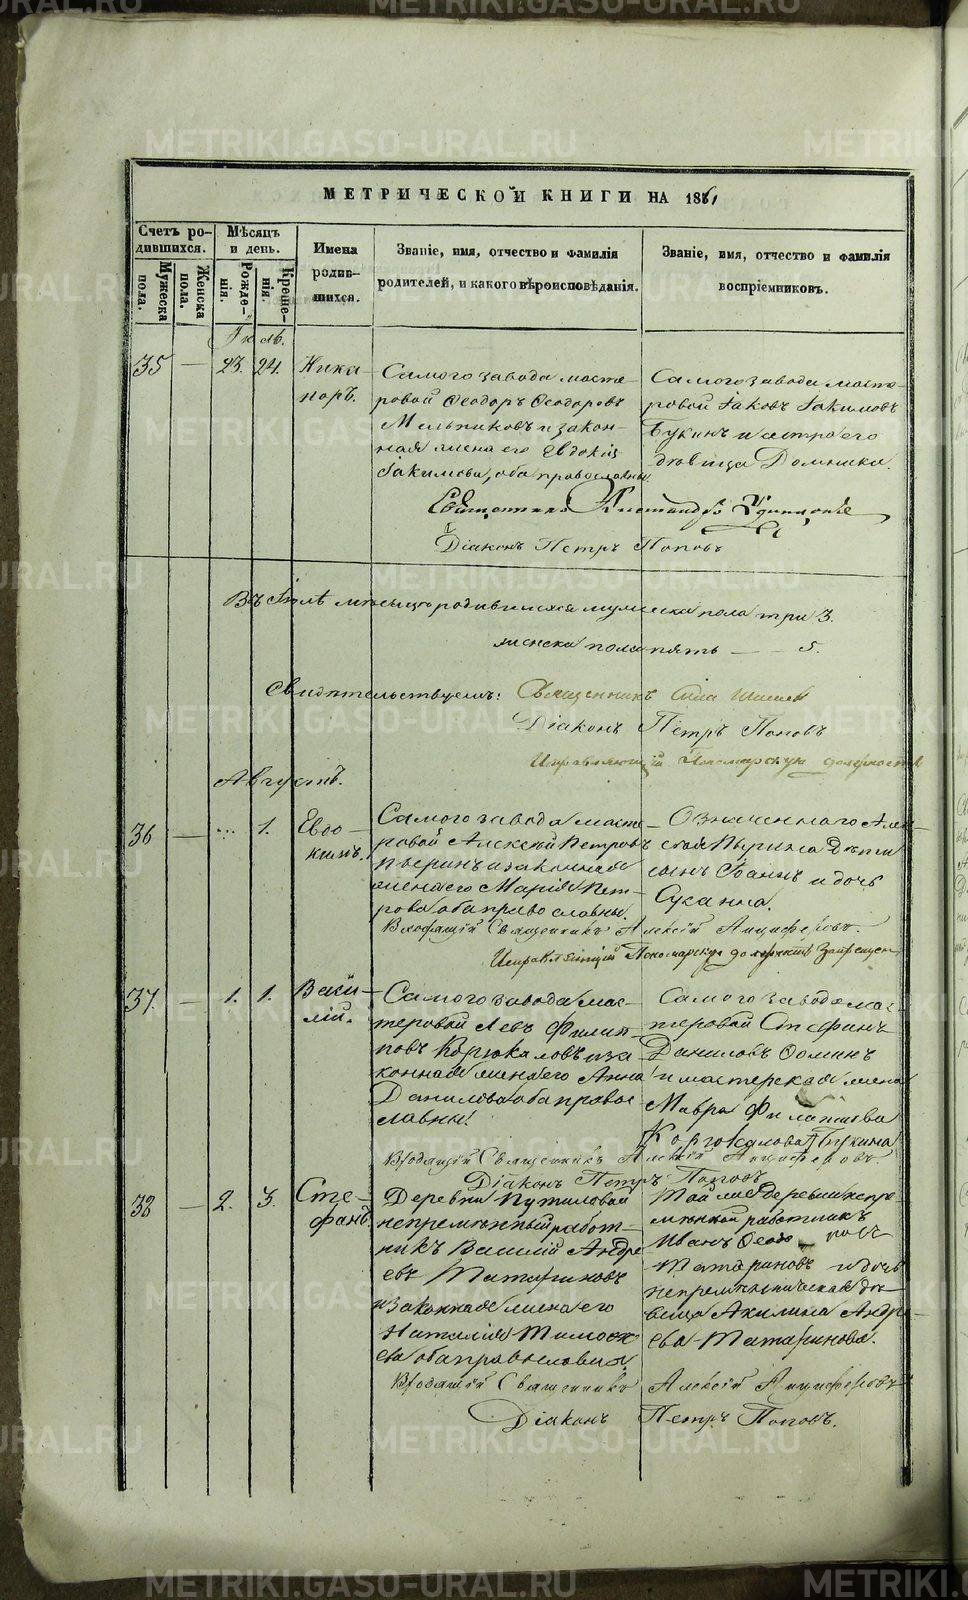 МЕТРИЧЕСКОЙ КНИГИ НА 1861
Счетъ ро-
дившихся.
Мѣсяцъ
и день.
Мужеска
пола.
Женска
пола.
Рожде-
нія.
Креще-
нія.
Имена
родив-
шихся.
Званіе, имя, отчество и фамилія
родителей, и какого вѣроисповѣданія.
Званіе, имя, отчество и фамилія
воспріемниковъ.
Іюль.
35 — 23. 24. Ника-
норъ.
Самого завода масте-
ровой Ѳеодоръ Ѳеодоровъ
Мельниковъ и закон-
ная жена его Евдокія
Іакимова, оба православны
Самого завода масте-
ровой Іаковъ Іакимовъ
Букинъ и сестра его
дѣвица Домника.
Священникъ
Діаконъ Петръ Поповъ
Въ Іюлѣ мѣсяцѣ родившихся мужеска пола три 3.
женска пола пять — — 5.
Свидѣтельствуемъ: Священникъ
Діаконъ Петръ Поповъ
Исправляющій Пономарскую должность
Августъ.
36 — ... 1. Евдо-
кимъ.
Самого завода масте-
ровой Алексѣй Петровъ
Пыринъ и законная
жена его Марія Пет-
рова оба православны.
Означеннаго Алек-
сѣя Пырина дѣти
сынъ Іоаннъ и дочь
Сусанна.
Входящій Священникъ Алексій Анциферовъ.
Исправляющій Пономарскую должность Запрещен
37. — 1. 1. Васи-
лій.
Самого завода мас-
теровой Левъ Филип-
повъ Корюкаловъ и за
конная жена его Анна
Данилова оба правос
лавны.
Самого завода мас-
теровой Стефанъ
Даниловъ Ѳоминъ
и мастерская жена
Мавра Филиппова
Корюкалова
Входящій Священникъ Алексій Анциферовъ.
Діаконъ Петръ Поповъ
38 — 2. 3. Сте-
фанъ.
Деревни Путиловой
непремѣнный работ-
никъ Василій Андре
евъ Татариновъ
и законная жена его
Наталія Тимоѳе
ева оба православны.
Той же деревни непре-
мѣнной работникъ
Иванъ Ѳеодо ровъ
Татариновъ и дочь
непремѣнническая дѣ-
вица Акилина Андре-
ева Татаринова.
Входящій Священникъ Алексій Анциферовъ
Діаконъ Петръ Поповъ.
METRIKI.GASO-URAL.RU